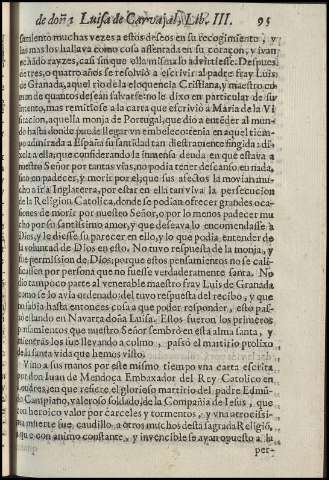 de doña Luisa de Carvajal, Lib. III. 95
samiento muchas vezes a estos deseos en su recogimiento, y
las mas los hallava como cosa assentada en su coraçon, y ivan
echando rayzes, casi sin que ella misma lo advirtiesse. Despues
de tres, o quatro años se resolvió a escrivir al padre fray Luis
de Granada, aquel rio de la eloquencia Cristiana, y maestro co-
mun de quantos desean salvarse: no le dixo en particular de su
intento, mas remitiose a la carta que escrivió a Maria de la Vi
sitacion, aquella monja de Portugal, que dio a entender al mun-
do hasta donde puede llegar un embeleco tenia en aquel tiem-
po admirada a España su santidad tan diestramente fingida: di-
xela a ella, que considerando la inmensa deuda en que estava a
nuestro Señor por tantas vias, no podia tener descanso en nada,
sino en padecer, y morir por el; que sus afectos la movian mu-
cho a ir a Inglaterra, por estar en ella tan viva la persecucion
de la Religion Catolica, donde se podian ofrecer grandes oca-
siones de morir por nuestro Señor, o por lo menos padecer mu
cho por su santissimo amor, y que deseava lo encomendasse a
Dios, y le diesse su parecer en ello, y lo que podia entender de
la voluntad de Dios en esto. No tuvo respuesta de la monja, y
fue permission de Dios; porque estos pensamientos no se cali-
ficassen por persona que no fuesse verdaderamente santa. No
dio tampoco parte al venerable maestro fray Luis de Granada
como se lo avia ordenado: del tuvo respuesta del recibo, y que
no sabia hasta entonces cosa a que poder responder, esto pas-
só estando en Navarra doña Luisa. Estos fueron los primeros
pensamientos que nuestro Señor sembró en esta alma santa, y
mientras los iue llevando a colmo, passó el martirio prolixo
de la santa vida que hemos visto.
Vino a sus manos por este mismo tiempo una carta escrita
por don Juan de Mendoça Embaxador del Rey Catolico en
Londres, en que refiere el glorioso martirio del padre Edmú-
do Campiano, valeroso soldado, de la Compañia de Jesus, que
con heroico valor por carceles y tormentos, y una atrocissi-
ma muerte fue caudillo a otros muchos desta sagrada Religió,
que con animo constante, y invencible se avian opuesto a la
per-